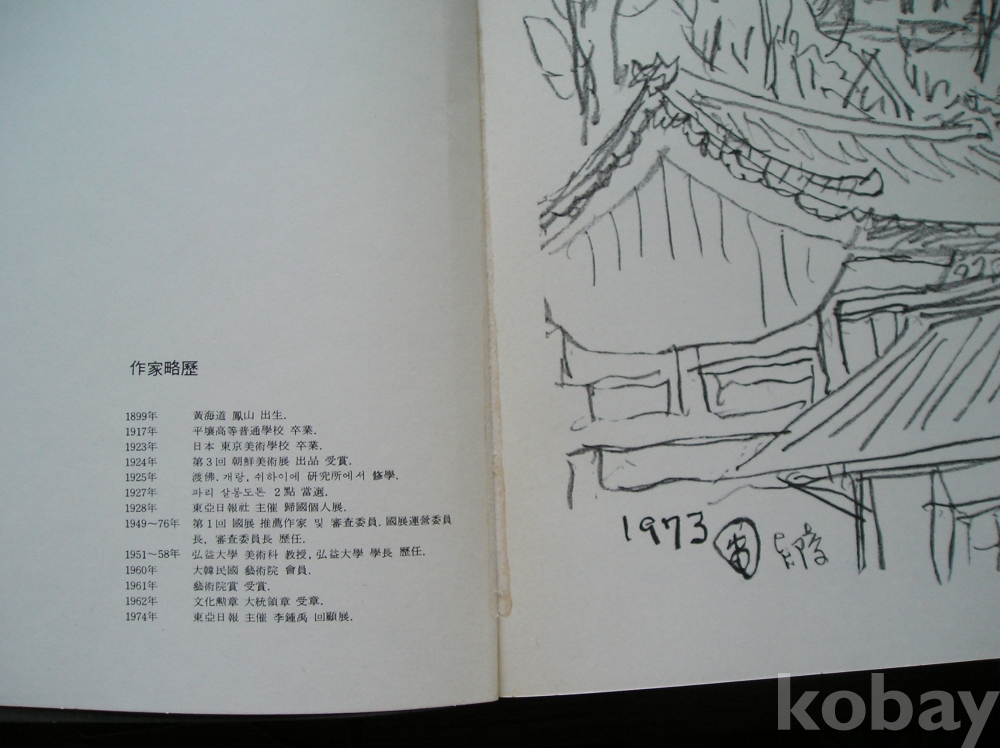 作家略歷
1899年 黃海道 鳳山 出生.
1917年 平壤高等普通學校 卒業.
1923年 日本 東京美術學校 卒業.
1924年 第3回 朝鮮美術展 出品 受賞.
1925年 渡佛. 개랑, 쉬하이에 硏究所에서 修學.
1927年 파리 살롱도톤 2點 當選.
1928年 東亞日報社 主催 歸國個人展.
1949～76年 第1回 國展 推薦作家 및 審査委員. 國展運營委員
長, 審査委員長 歷任.
1951～58年 弘益大學 美術科 敎授, 弘益大學 學長 歷任.
1960年 大韓民國 藝術院 會員.
1961年 藝術院賞 受賞.
1962年 文化勳章 大統領章 受章.
1974年 東亞日報 主催 李鍾禹 回顧展.
1973
kobay